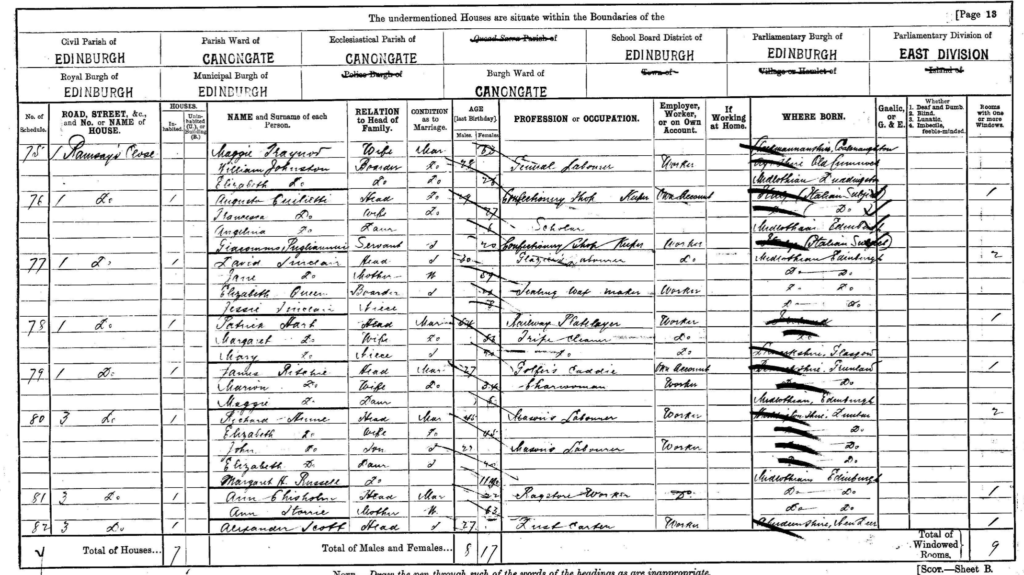 The undermentioned Houses are situate within the Boundaries of the
[Page 13
Civil Parish of
EDINBURGH
Parish Ward of
CANONGATE
Ecclesiastical Parish of
CANONGATE
Quoad Sacra Parish of
School Board District of
EDINBURGH
Parliamentary Burgh of
EDINBURGH
Parliamentary Division of
EAST DIVISION
Royal Burgh of
EDINBURGH
Municipal Burgh of
EDINBURGH
Police Burgh of
Burgh Ward of
CANONGATE
Town of
Village or Hamlet of
Island of
No. of Schedule.
ROAD, STREET, &c., and No. or NAME of HOUSE.
HOUSES.
In-habited.
Unin-habited (U.), or Building (B.).
NAME and Surname of each Person.
RELATION to Head of Family.
CONDITION as to Marriage.
AGE [last Birthday].
Males.
Females.
PROFESSION or OCCUPATION.
Employer, Worker, or on Own Account.
If Working at Home.
WHERE BORN.
Gaelic, or G. & E.
Whether
1. Deaf and Dumb.
2. Blind.
3. Lunatic.
4. Imbecile, feeble-minded.
Rooms with one or more Windows.
75 1 Ramsay's Close Maggie Traynor Wife Mar 63
William Johnston Boarder Do General Labourer Worker Ayrshire
Elizabeth Do Do Do Midlothian Duddingston
76 1 Do 1 Head Do Confectionery Shop Keeper Own Account (Italian Subject) 1
Do Wife Do 27 Do
Angelina Do Daur 6 Scholar Midlothian Edinburgh
Servant S 20 Confectionery Shop Keeper Worker (Italian Subject)
77 1 Do 1 David Sinclair Head S 30 Labourer Do Midlothian Edinburgh 2
Jane Do Mother W Do Do
Elizabeth Queen Boarder S Sealing Wax maker Worker Do Do
Jessie Sinclair Niece Do Do
78 1 Do 1 Patrick Hart Head Mar Railway Platelayer Worker Ireland 1
Margaret Do Wife Do 52 Tripe Cleaner Do Do
Mary Do Niece S Do Do Lanarkshire, Glasgow
79 1 Do 1 James Ritchie Head Mar 27 Golfer's Caddie Own Account 1
Marion Do Wife Do 24 Charwoman Worker Do
Maggie Do Daur 6 Midlothian, Edinburgh
80 3 Do 1 Richard Head Mar 46 Mason's Labourer Worker Dunbar 2
Elizabeth Do Wife Do 45 Do
John Do Son S 21 Mason's Labourer Worker Do
Elizabeth Do Daur S Do
Margaret H. Russell Do Midlothian Edinburgh
81 3 Do 1 Ann Chisholm Head Mar 22 Ragstore Worker Do Do Do 1
Ann Storrie Mother W 63 Do Do
82 3 Do 1 Alexander Scott Head S 27 Dust Carter Worker Aberdeenshire, 1
Total of Houses... 7
Total of Males and Females... 8 17
Total of Windowed Rooms. 9
NOTE.—Draw the pen through such of the words of the headings as are inappropriate.
[Scot.—Sheet B.